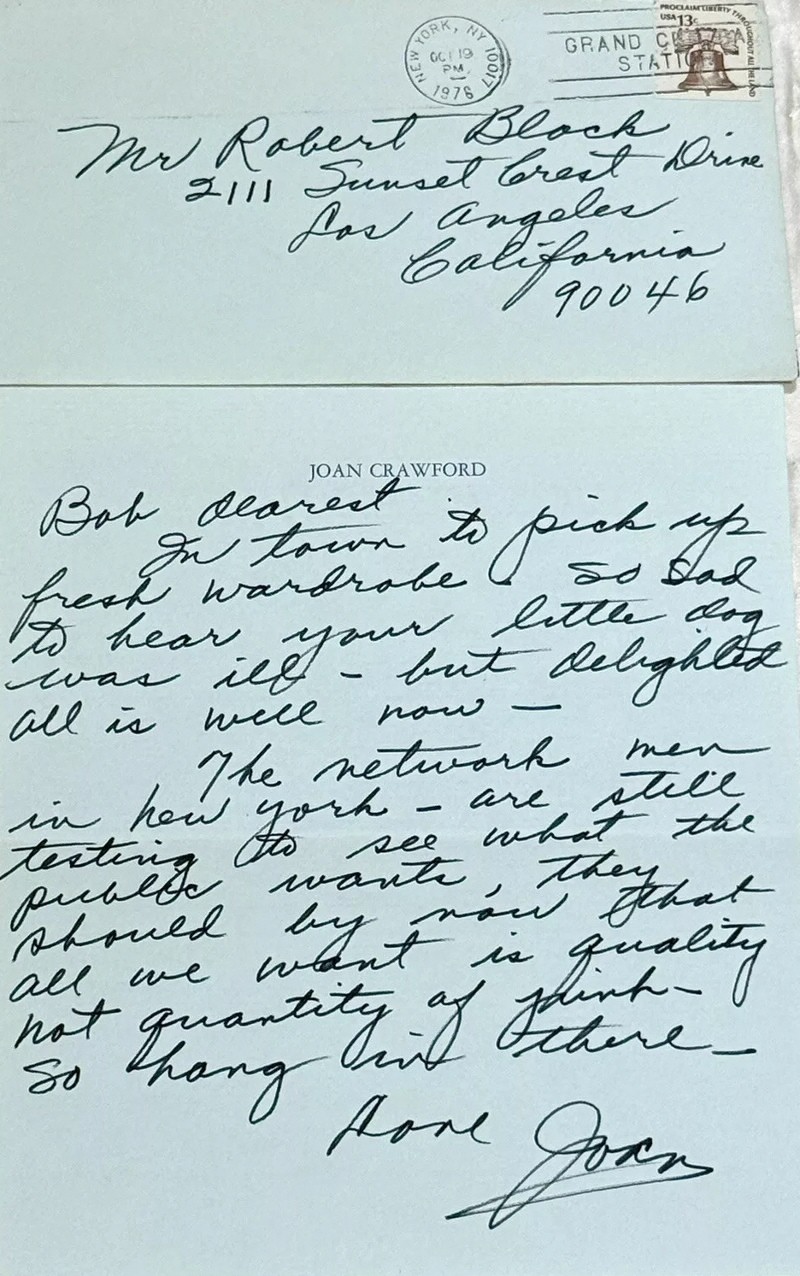 PROCLAIM LIBERTY THROUGHOUT ALL THE LAND
USA 13c
NEW YORK, NY 10017
OCT 19
PM
1976
GRAND CENTRAL
STATION
Mr Robert Bloch
2111 Sunset Crest Drive
Los Angeles
California
90046
JOAN CRAWFORD
Bob dearest
In town to pick up
fresh wardrobe. So sad
to hear your little dog
was ill - but delighted
all is well now -
The network men
in New York - are still
testing to see what the
public wants, they
should by now that
all we want is quality
not quantity of junk -
So hang in there -
Love Joan